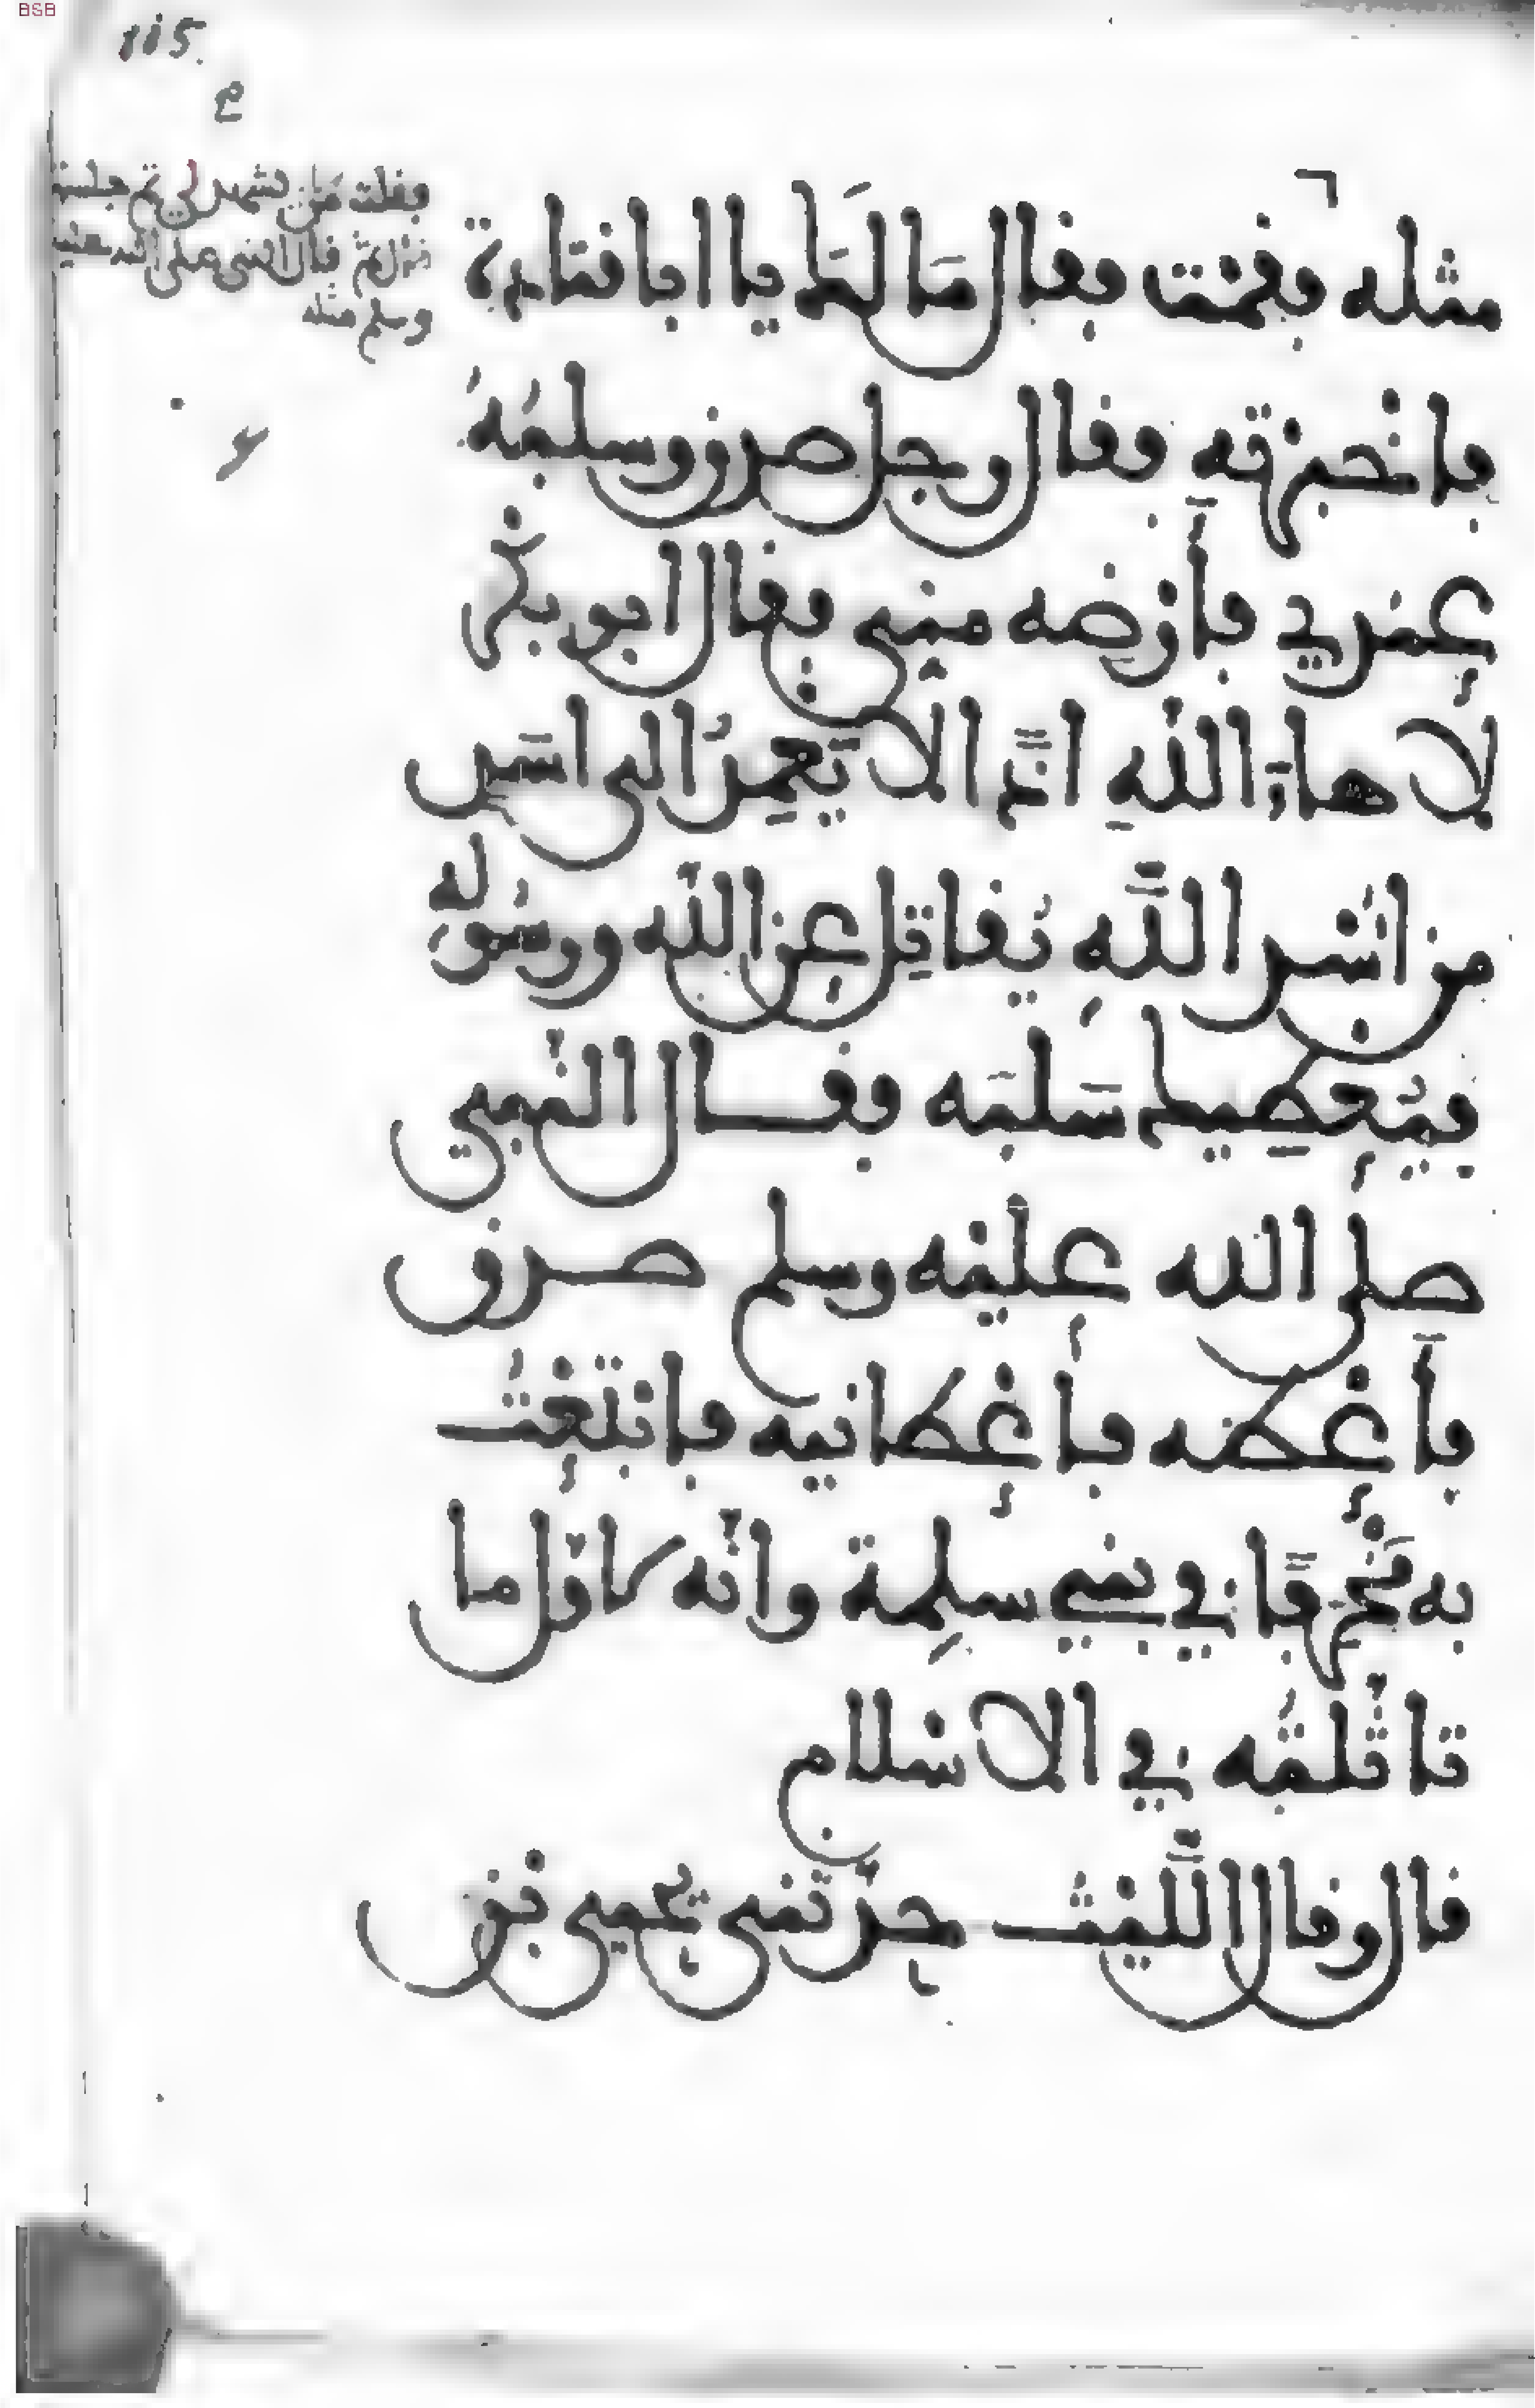 115.
فقلت من يشهد لي ثم جلست
قال ثم قال النبي صلى الله عليه
وسلم مثله
مثله فقمت فقال مَا لَكَ يا ابا قتادة
فاخبرته فقال رجل صدق وسلبُهُ
عندي فأرضه مني فقال ابو بكر
لا هاءَ اللهِ اذًا لا يَعمِدُ الى اسَدٍ
من أُسْدِ اللَّهِ يُقاتِل عن الله ورسُوله
فيُعطِيك سَلَبَه فقال النبي
صلى الله عليه وسلم صدق
فأعْطه فأعْطانيه فابْتَعْتُ
به مَخْرَفًا في بني سلِمة وانه لاول ما
تاثلته في الاسلام
قال وقال اللَّيْث حدثني يحيى بن